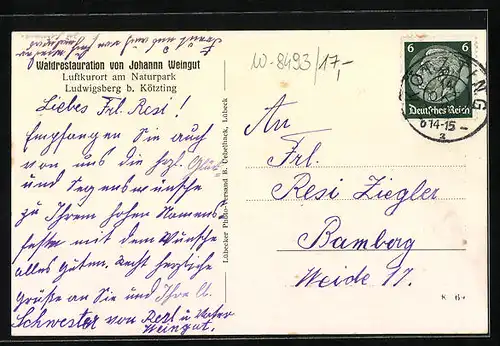 Waldrestauration von Johannn Weingut
Luftkurort am Naturpark
Ludwigsberg b. Kötzting
W-8493/17,-
Liebes Frl. Resi!
Empfangen Sie auch
von uns die hzl. Glück
und Segenswünsche
zu Ihrem hohen Namens
feste mit dem Wunsche
alles Guten. Recht herzliche
Grüße an Sie und Ihre lb.
Schwester von Resl u. Vater
Weingut.
Lübecker Photo-Versand B. Uebelhack, Lübeck
6 6
Deutsches Reich
KÖTZTING
14-15
a
An
Frl.
Resi Ziegler
Bamberg
Weide 17.